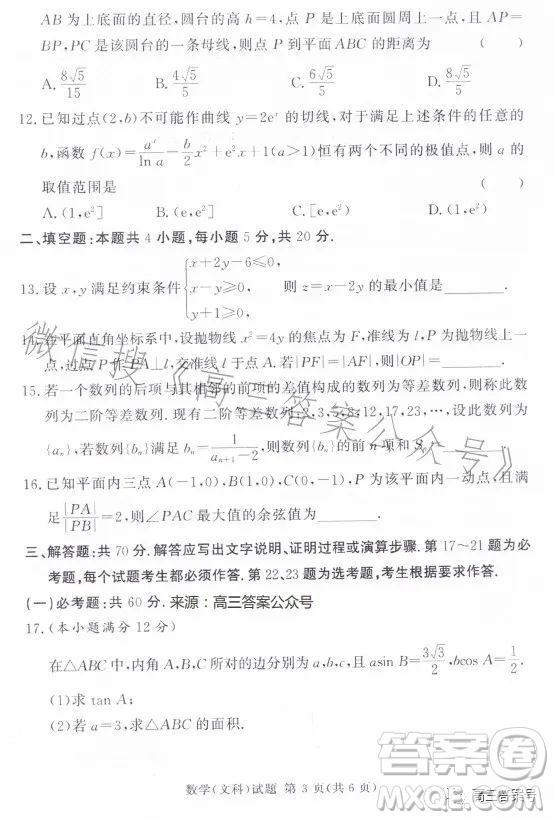 AB 为上底面的直径,圆台的高 h=4,点 P 是上底面圆周上一点,且 AP=
BP,PC 是该圆台的一条母线,则点 P 到平面 ABC 的距离为 ( )
A. 8√5/15 B. 4√5/5 C. 6√5/5 D. 8√5/5
12.已知过点(2,b)不可能作曲线 y=2eˣ 的切线,对于满足上述条件的任意的
b,函数 f(x)=aˣ/ln a−b/2 x²+e²x+1(a>1)恒有两个不同的极值点,则 a 的
取值范围是 ( )
A.(1,e²] B.(e,e²] C.(1,e²) D.(1,e²]
二、填空题:本题共 4 小题,每小题 5 分,共 20 分.
13.设 x,y 满足约束条件{x+2y−6≤0, x−1≥0, y≥0, 则 z=x−2y 的最小值是
14.在平面直角坐标系中,设抛物线 x²=4y 的焦点为 F,准线为 l,P 为抛物线上一
点,过点 P 作 A.若|PF|=AF|,则|OP|=
15.若一个数列的后项与其相邻的前项的差值构成的数列为等差数列,则称此数
列为二阶等差数列.现有二阶等差数列:2,3,5,8,12,17,23,…,设此数列为
{aₙ},若数列{bₙ}满足 bₙ=1/(aₙ₊₁−2),则数列{bₙ}的前 n 项和 Sₙ
16.已知平面内三点 A(−1,0),B(1,0),P 为该平面内一动点,且满
足|PA|/|PB|=2,则∠PAC 最大值的余弦值为
三、解答题:共 70 分.解答应写出文字说明、证明过程或演算步骤.第 17~21 题为必
考题,每个试题考生都必须作答.第 22、23 题为选考题,考生根据要求作答.
(一)必考题:共 60 分. 来源:高三答案公众号
17.(本小题满分 12 分)
在△ABC 中,内角 A,B,C 所对的边分别为 a,b,c,且 asin B=3√3/2,bcos A=1/2.
(1)求 tan A;
(2)若 a=3,求△ABC 的面积.
数学(文科)试题 第 3 页(共 6 页)
微信搜《高三答案公众号》